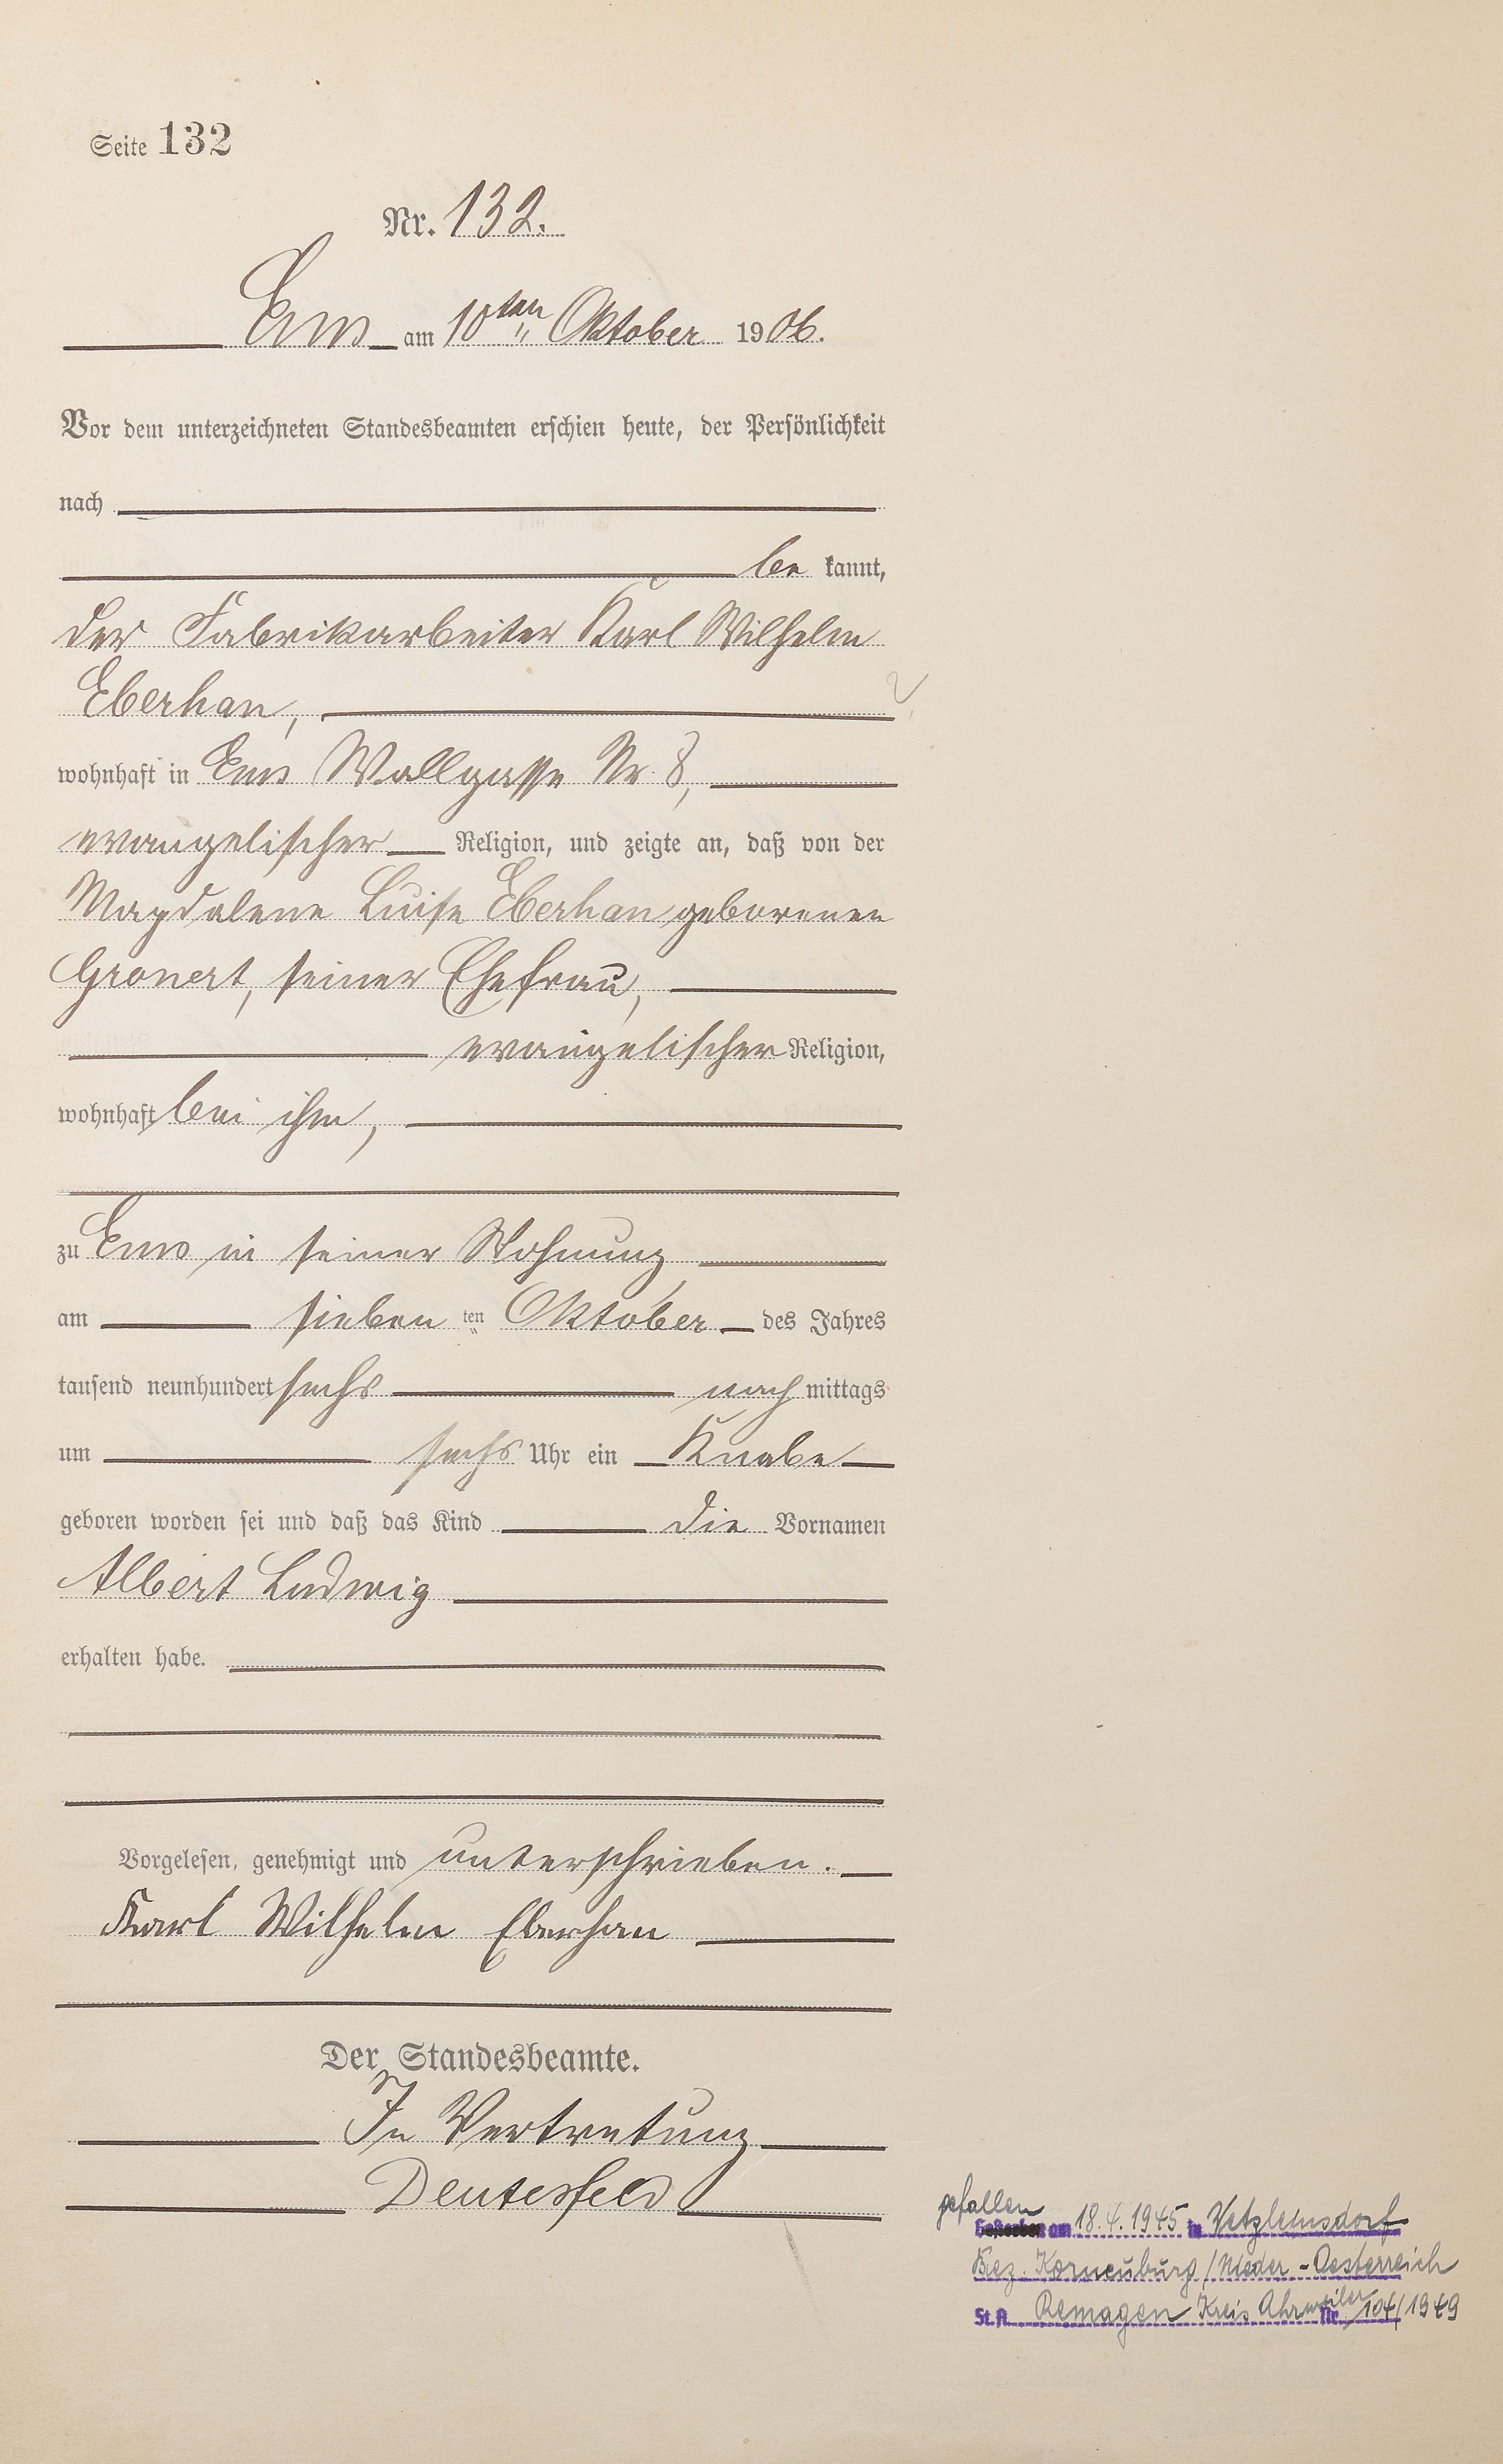 Seite 132
Nr. 132.
Ems am 10ten Oktober 1906.
Vor dem unterzeichneten Standesbeamten erschien heute, der Persönlichkeit
nach
be kannt,
der Fabrikarbeiter Karl Wilhelm
Eberhan,
wohnhaft in Ems Wallgasse Nr. 8,
evangelischer Religion, und zeigte an, daß von der
Magdalene Luise Eberhan geborenen
Gronert, seiner Ehefrau,
evangelischer Religion,
wohnhaft bei ihm,
zu Ems in seiner Wohnung
am sieben ten Oktober des Jahres
tausend neunhundert sechs nach mittags
um sechs Uhr ein Knabe
geboren worden sei und daß das Kind die Vornamen
Albert Ludwig
erhalten habe.
Vorgelesen, genehmigt und unterschrieben.
Karl Wilhelm Eberhan
Der Standesbeamte.
In Vertretung
Deutesfeld
gefallen
Gestorben am 18.4.1945 in Wetzleinsdorf
Bez. Korneuburg / Nieder-Oesterreich
St.A. Remagen Kreis Ahrweiler Nr. 104/1949